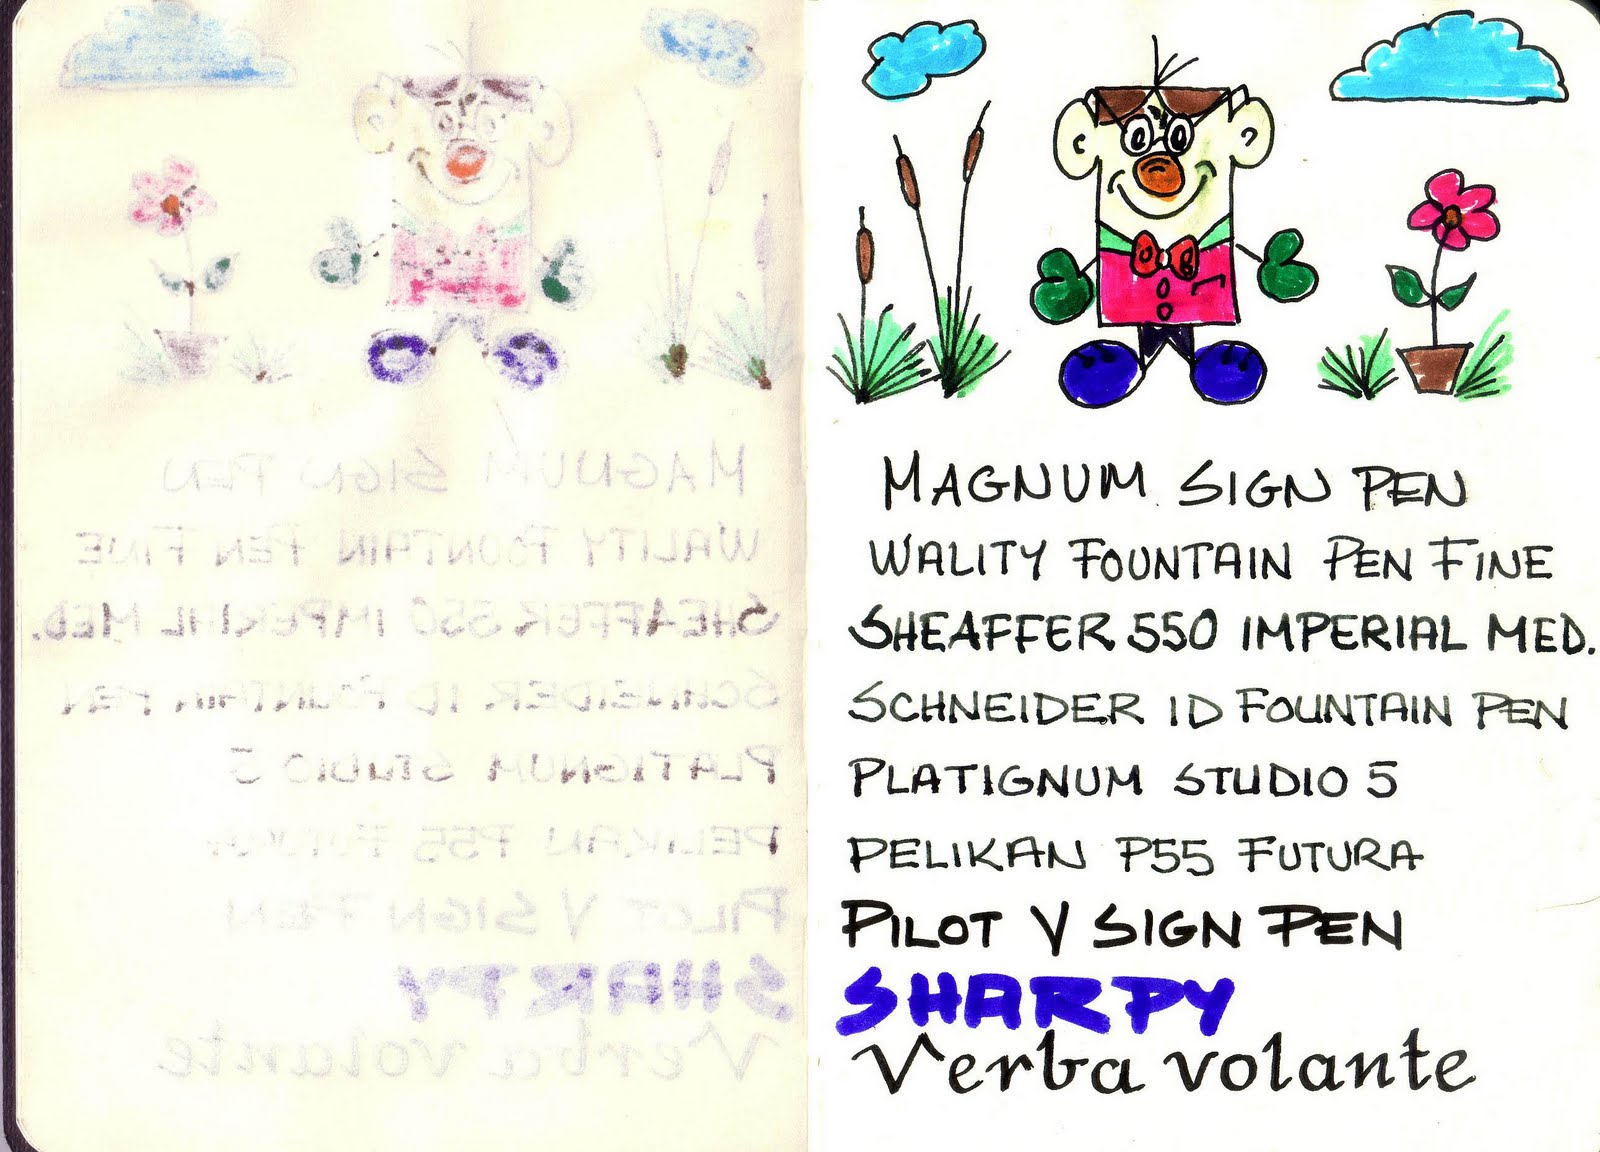 MAGNUM SIGN PEN
WALITY FOUNTAIN PEN FINE
SHEAFFER 550 IMPERIAL MED.
SCHNEIDER ID FOUNTAIN PEN
PLATIGNUM STUDIO 5
PELIKAN P55 FUTURA
PILOT V SIGN PEN
SHARPY
Verba volante